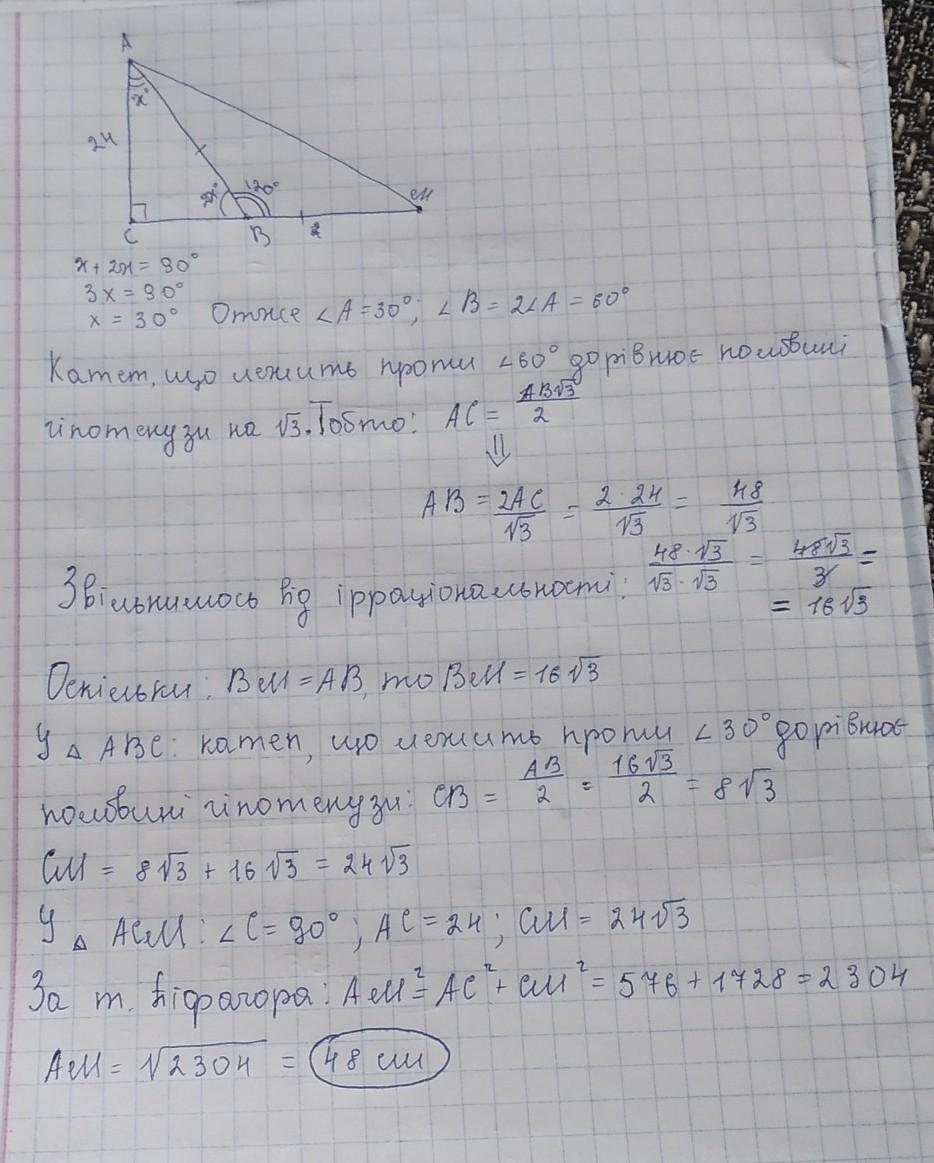 A
x°
24
2x°
120°
M
C
B
x + 2x = 90°
3x = 90°
x = 30° Отже ∠A = 30°; ∠B = 2∠A = 60°
Катет, що лежить проти ∠60° дорівнює половині
гіпотенузи на √3. Тобто: AC = AB√3/2
⇓
AB = 2AC/√3 = 2·24/√3 = 48/√3
Звільнимось від ірраціональності: 48·√3/√3·√3 = 48√3/3 =
= 16√3
Оскільки: BM = AB, то BM = 16√3
У △ ABC: катет, що лежить проти ∠30° дорівнює
половині гіпотенузи: CB = AB/2 = 16√3/2 = 8√3
CM = 8√3 + 16√3 = 24√3
У △ ACM: ∠C = 90°; AC = 24; CM = 24√3
За т. Піфагора: AM² = AC² + CM² = 576 + 1728 = 2304
AM = √2304 = 48 см